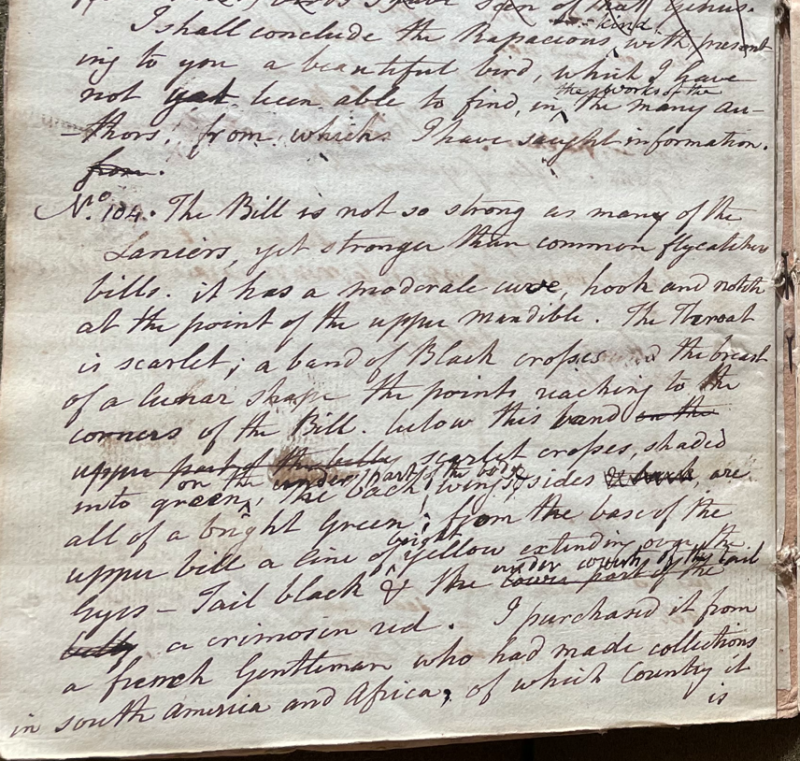 I have seen of that Genus.
kind
I shall conclude the Rapacious, with present
ing to you a beautiful bird, which I have
the works of the
not yet been able to find, in the many au-
-thors, from which I have sought information.
from.
No. 104. The Bill is not so strong as many of the
Laniers, yet stronger than common flycatchers
bills. it has a moderate curve, hook and notch
at the point of the upper mandible. The Throat
is scarlet; a band of Black crosses the breast
of a lunar shape the points reaching to the
corners of the Bill. below this band on the
upper part of the belly scarlet crosses, shaded
on the under part of the body
into green, the back, wings, sides & back, are
all of a bright Green; from the base of the
bright
upper bill a line of yellow extending over the
under coverts of the tail
Eyes - Tail black & the lower part of the
belly a crimosin red. I purchased it from
a french Gentleman who had made collections
in south America and Africa, of which Country it
is